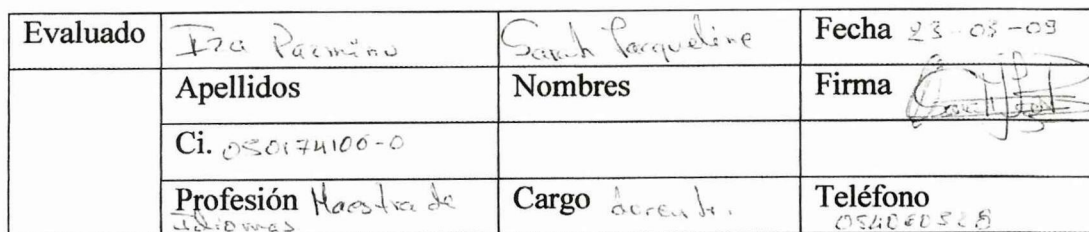 Evaluado Iza Pazmiño Sarah Jacqueline Fecha 23-03-09
Apellidos Nombres Firma
Ci. 050174100-0
Profesión Maestra de Cargo docente. Teléfono
Idiomas